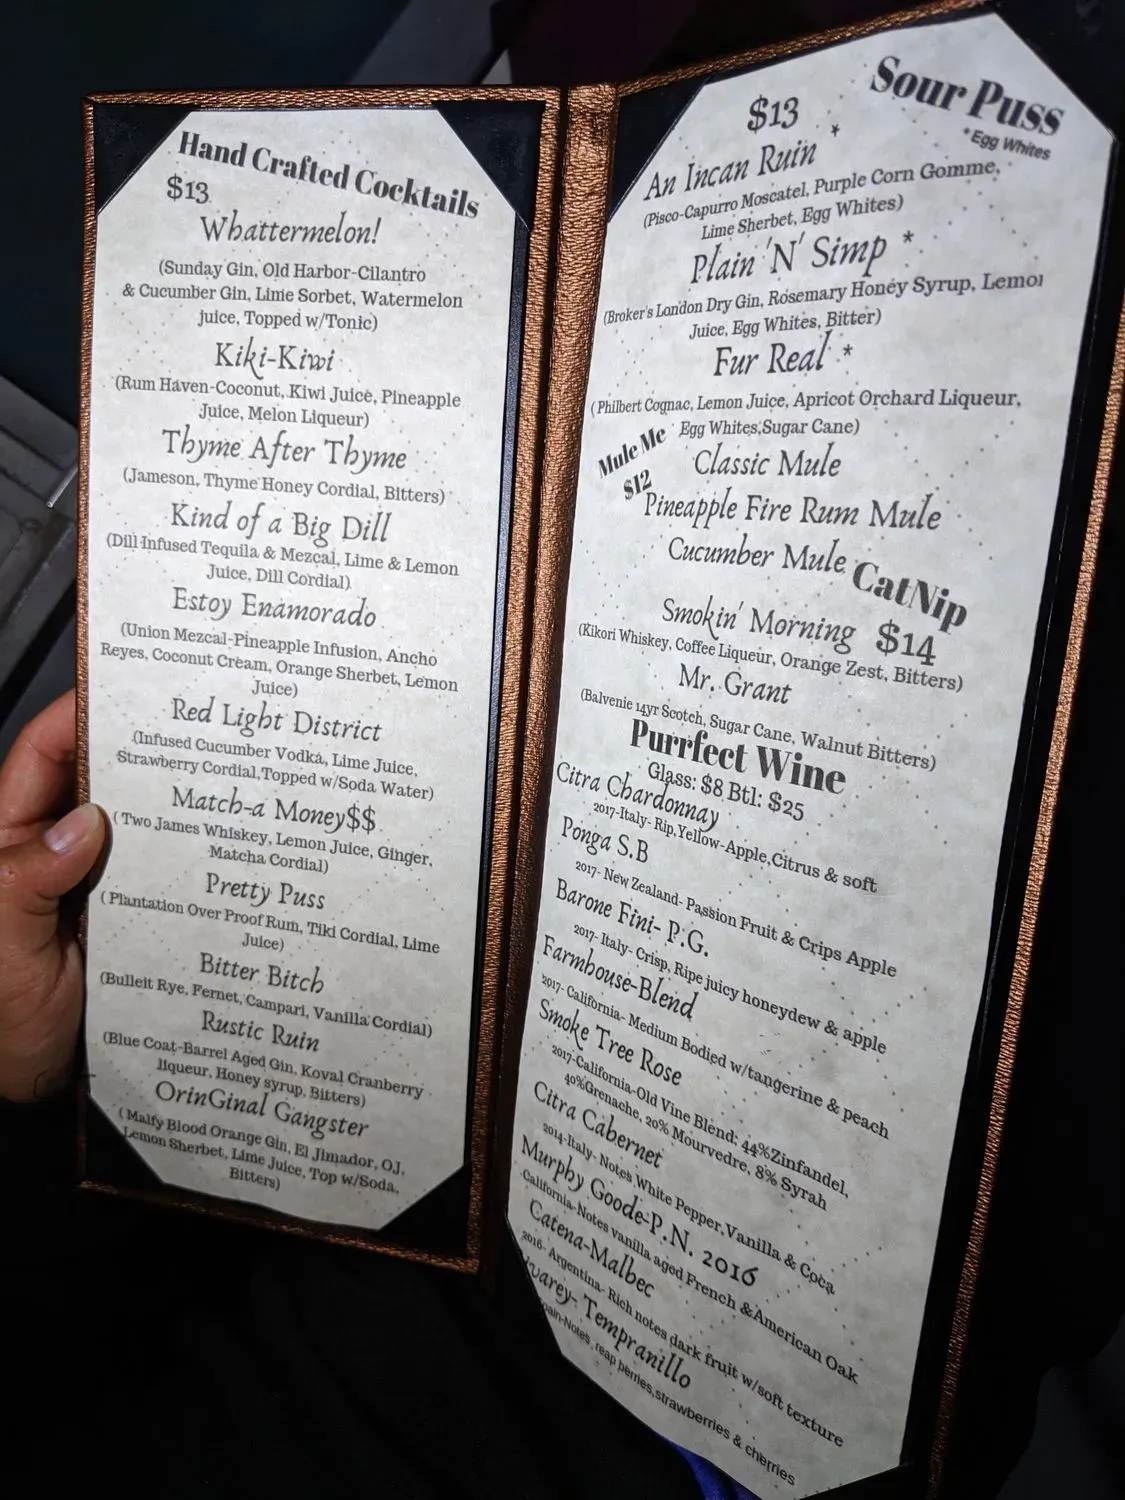 Hand Crafted Cocktails
$13
Whattermelon!
(Sunday Gin, Old Harbor-Cilantro
& Cucumber Gin, Lime Sorbet, Watermelon
juice, Topped w/Tonic)
Kiki-Kiwi
(Rum Haven-Coconut, Kiwi Juice, Pineapple
Juice, Melon Liqueur)
Thyme After Thyme
(Jameson, Thyme Honey Cordial, Bitters)
Kind of a Big Dill
(Dill Infused Tequila & Mezcal, Lime & Lemon
Juice, Dill Cordial)
Estoy Enamorado
(Union Mezcal-Pineapple Infusion, Ancho
Reyes, Coconut Cream, Orange Sherbet, Lemon
Juice)
Red Light District
(Infused Cucumber Vodka, Lime Juice,
Strawberry Cordial,Topped w/Soda Water)
Match-a Money$$
( Two James Whiskey, Lemon Juice, Ginger,
Matcha Cordial)
Pretty Puss
( Plantation Over Proof Rum, Tiki Cordial, Lime
Juice)
Bitter Bitch
(Bulleit Rye, Fernet, Campari, Vanilla Cordial)
Rustic Ruin
(Blue Coat-Barrel Aged Gin, Koval Cranberry
liqueur, Honey syrup, Bitters)
OrinGinal Gangster
( Malfy Blood Orange Gin, El Jimador, OJ,
Lemon Sherbet, Lime Juice, Top w/Soda,
Bitters)
Sour Puss
* Egg Whites
$13
An Incan Ruin *
(Pisco-Capurro Moscatel, Purple Corn Gomme,
Lime Sherbet, Egg Whites)
Plain 'N' Simp *
(Broker's London Dry Gin, Rosemary Honey Syrup, Lemon
Juice, Egg Whites, Bitter)
Fur Real *
( Philbert Cognac, Lemon Juice, Apricot Orchard Liqueur,
Egg Whites,Sugar Cane)
Mule Me
$12
Classic Mule
Pineapple Fire Rum Mule
Cucumber Mule
CatNip
$14
Smokin' Morning
(Kikori Whiskey, Coffee Liqueur, Orange Zest, Bitters)
Mr. Grant
(Balvenie 14yr Scotch, Sugar Cane, Walnut Bitters)
Purrfect Wine
Glass: $8 Btl: $25
Citra Chardonnay
2017-Italy- Rip,Yellow-Apple,Citrus & soft
Ponga S.B
2017- New Zealand- Passion Fruit & Crips Apple
Barone Fini- P.G.
2017- Italy- Crisp, Ripe juicy honeydew & apple
Farmhouse-Blend
2017- California- Medium Bodied w/tangerine & peach
Smoke Tree Rose
2017-California-Old Vine Blend; 44%Zinfandel,
40%Grenache, 20% Mourvedre, 8% Syrah
Citra Cabernet
2014-Italy- Notes White Pepper,Vanilla & Coca
Murphy Goode-P.N. 2016
California-Notes vanilla aged French &American Oak
Catena-Malbec
2016- Argentina- Rich notes dark fruit w/soft texture
Tempranillo
reap berries,strawberries & cherries